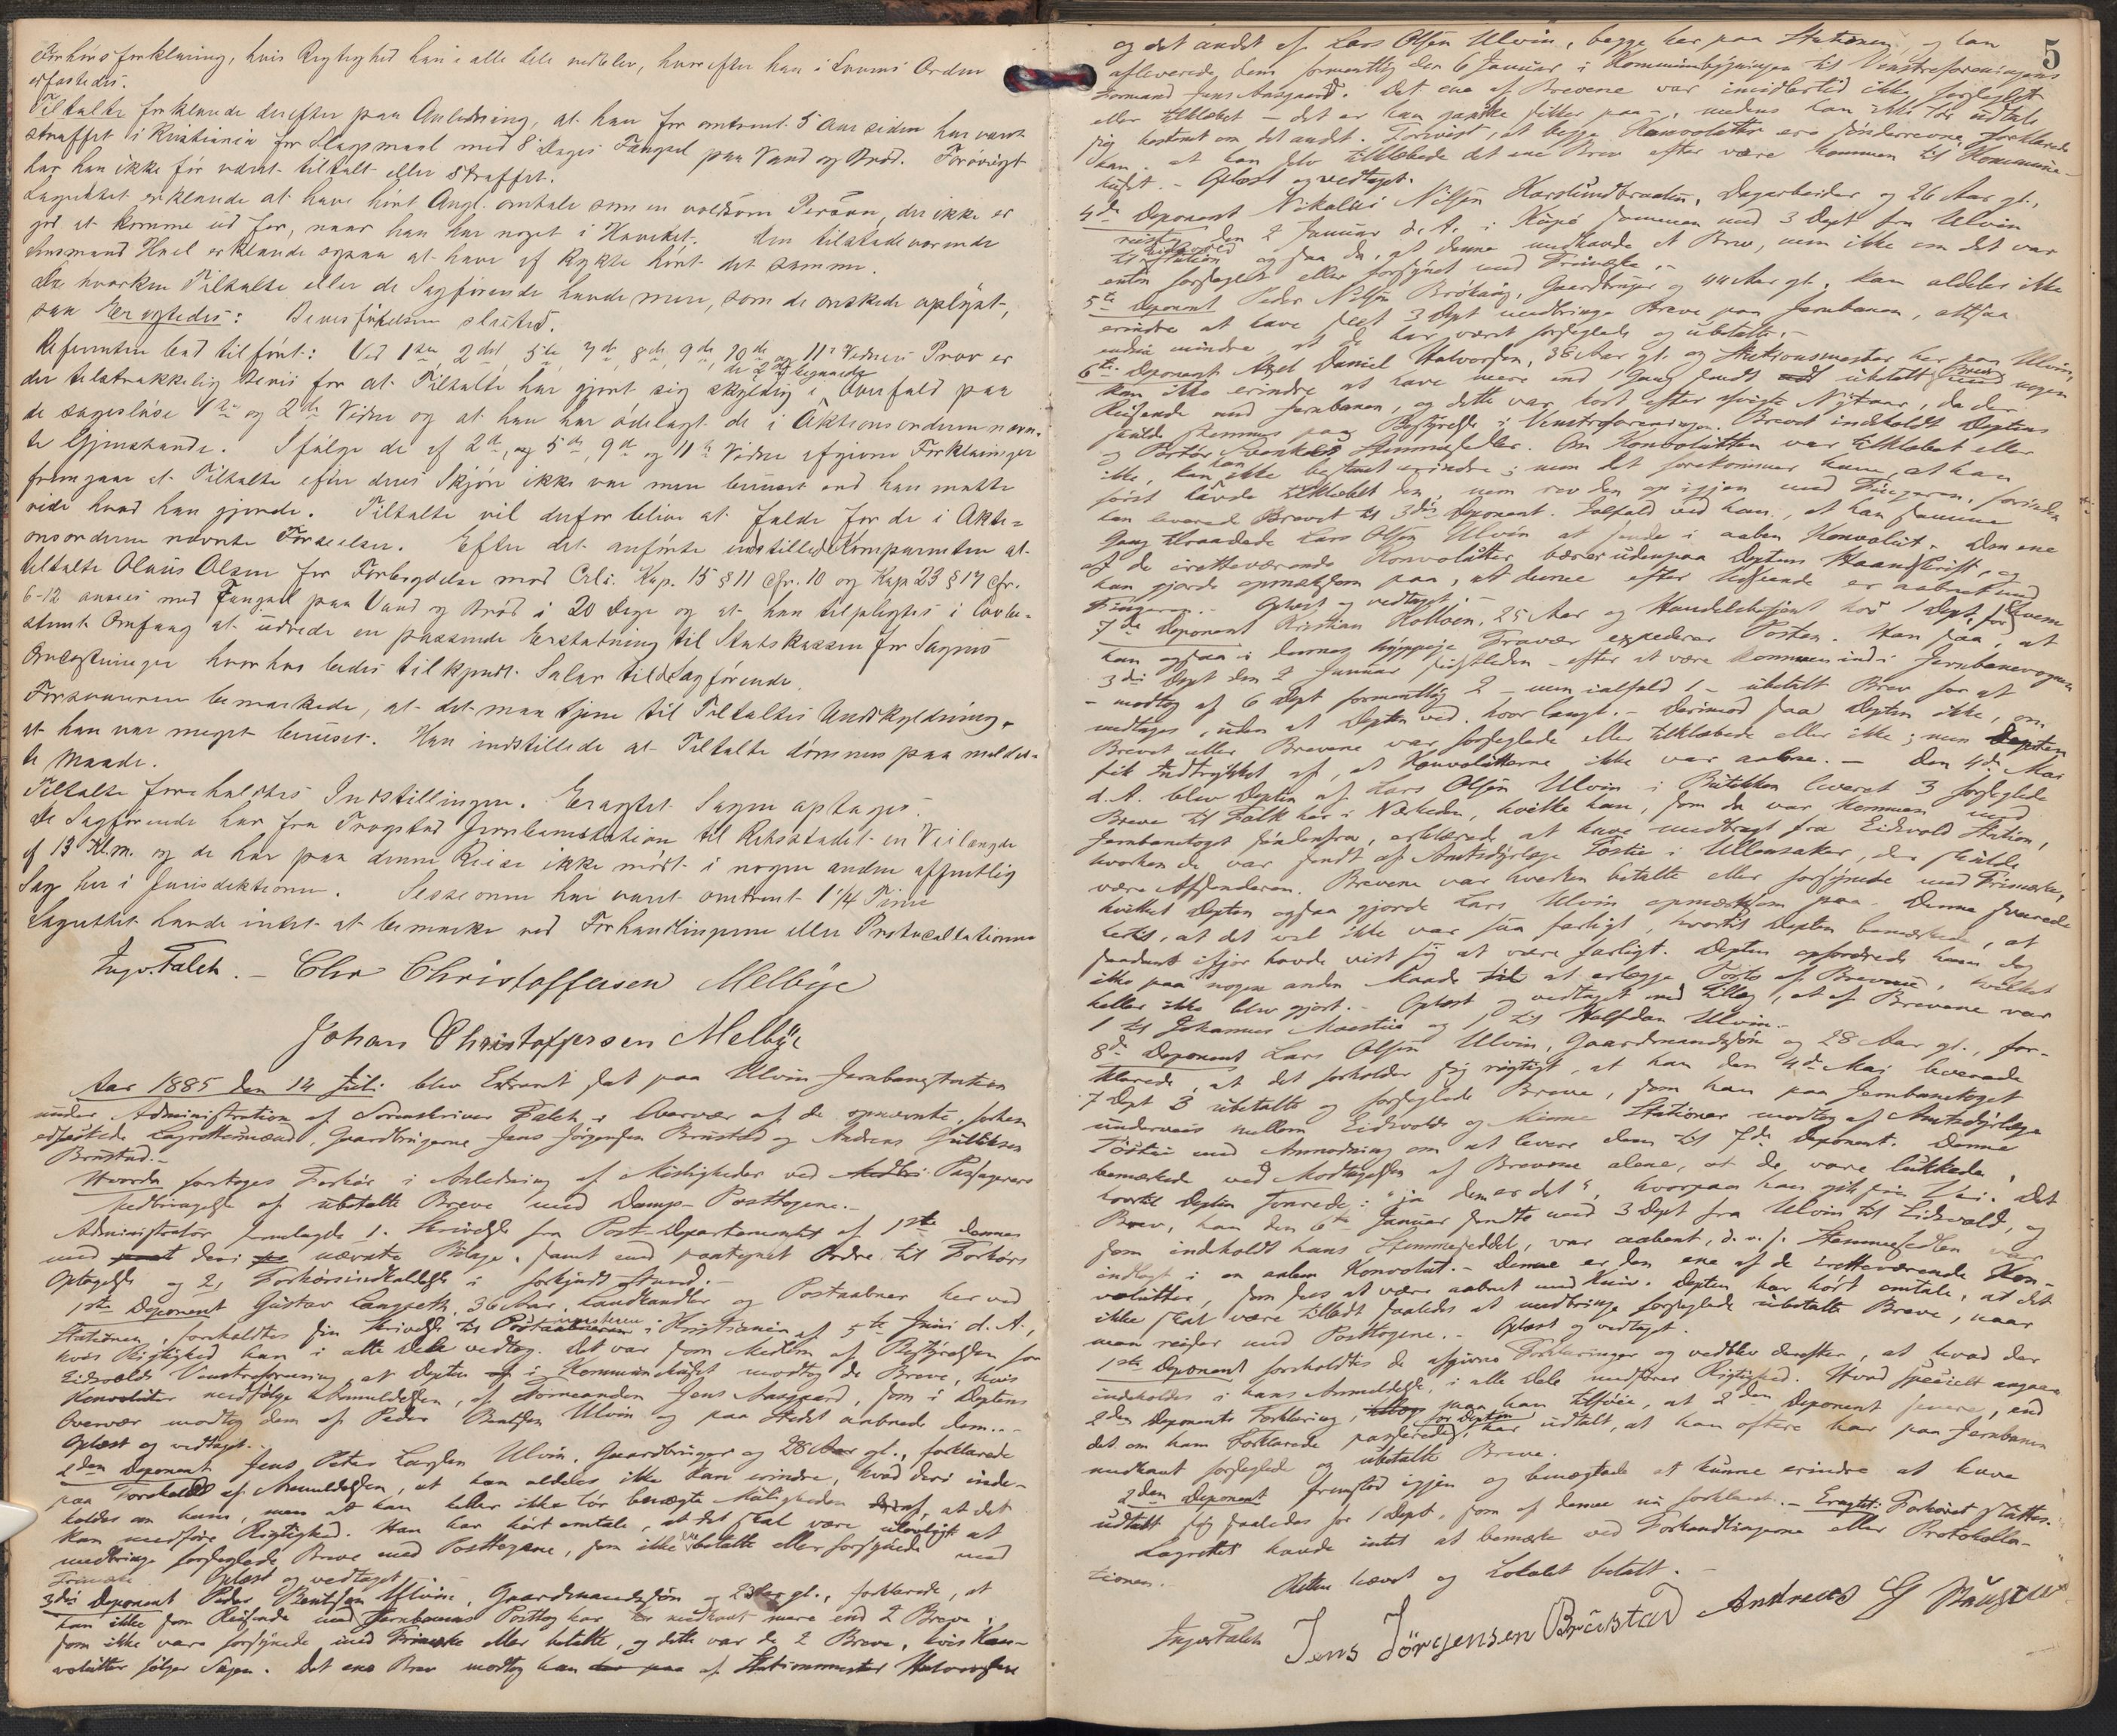 Forhørsforklaring, hvis Rigtighed han i alle dele vedblev, hvorefter han i Lovens Orden
edfæstedes.
Tiltalte forklarede derefter paa Anledning, at han for omtrent 5 Aar siden har været
straffet i Kristiania for Slagsmaal med 8 Dages Fængsel paa Vand og Brød. Forøvrigt
har han ikke før været tiltalt eller straffet.
Lagrettet erklærede at have hørt Angl. omtale som en voldsom Person, der ikke er
god at komme ud for, naar han har noget i Hovedet. Den tilstedeværende
Lensmand Hael erklærede ogsaa at have af Rygte hørt det samme.
Da hverken Tiltalte eller de Sagførende havde mere, som de ønskede oplyst,
saa Eragtedes: Bevisførelsen sluttet.
Referenten lod tilført: Ved 1ste, 2det, 5te, 7de, 8de, 9de, 10de og 11te Vidners Prov er
der tilstrækkelig Bevis for at Tiltalte har gjort sig skyldig i Overfald paa
de sagesløse 1ste og 2det Vidne og at han har ødelagt de i Aktionsordren nævn-
te Gjenstande. Ifølge de af 2det, og 5te, 9de og 11te Vidne afgivne Forklaringer
fremgaar at Tiltalte efter deres Skjøn ikke var mere beruset end han maatte
vide hvad han gjorde. Tiltalte vil derfor blive at fælde for de i Akti-
onsordren nævnte Forseelser. Efter det anførte indstillede Komparenten at
tiltalte Olaus Olsen for Forbrydelse mod Crl. Kap. 15 § 11 cfr. 10 og Kap 23 § 17 cfr.
6-12 ansees med Fængsel paa Vand og Brød i 20 Dage og at han tilpligtes i lovbe-
stemt Omfang at udrede en passende Erstatning til Statskassen for Sagens
Omkostninger hvorhos bedes tilkjendt Salær til de Sagførende.
Forsvareren bemærkede, at det maa tjene til Tiltaltes Undskyldning,
at han var meget beruset. Han indstillede at Tiltalte dømmes paa mildes-
te Maade.
Tiltalte foreholdtes Indstillingen. Eragtet Sagen optages.
De Sagførende har fra Trøgstad Jernbanestation til Retsstedet en Veilængde
af 13 Kl.m. og de har paa denne Reise ikke mødt i nogen anden offentlig
Sag her i Jurisdiktionen. Sessionen har varet omtrent 1 1/4 Time
Lagrettet havde intet at bemærke ved Forhandlingerne eller Protocollationen
Ingv. Falch. - Chr Christoffersen Melbye
Johan Christoffersen Melbye
Aar 1885 den 14 Juli blev Extraret sat paa Ulvin Jernbanestation
under Administration af Sorenskriver Falch, i Overvær af de opnævnte, forhen
edfæstede Lagrettesmænd, Gaardbrugerne Jens Jørgensen Brustad og Andreas Gulliksen
Brustad.-
Hvorda foretoges Forhør i Anledning af Misligheder ved Passagerers
Medbringelse af ubetalte Breve med Damp-Posttogene.-
Administrator fremlagde 1. Skrivelse fra Post-Departementet af 1ste dennes
med deri nævnte Bilage, samt med paategnet Ordre til Forhørs
Optagelse og 2, Forhørsindkaldelse i forkyndt Stand.-
1ste Deponent Gustav Langseth, 36 Aar, Landhandler og Postaabner her ved
Stationen, foreholdtes sin Skrivelse til Postmesteren i Kristiania af 5te Juni d. A.,
hvis Rigtighed han i alle Dele vedtog. Det var som Medlem af Bestyrelsen for
Eidsvolds Venstreforening, at Depten i Kommunehuset modtog de Breve, hvis
Konvolutter medfølge Anmeldelsen, af Formanden Jens Aasgaard, som i Deptens
Overvær modtog dem af Peder Bentsen Ulvin og paa Stedet aabnede dem.-
Oplæst og vedtaget.-
2den Deponent Jens Peter Larsen Ulvin, Gaardbruger og 28 Aar gl., forklarede
paa Foreholdt af Anmeldelsen, at han aldeles ikke kan erindre, hvad deri inde-
holdes om ham, men at han heller ikke tør benægte Muligheden deraf, at det
kan medføre Rigtighed. Han har hørt omtale, at det skal være ulovligt at
medbringe forseglede Breve med Posttogene, som ikke er betalte eller forsynede med
Frimærke. Oplæst og vedtaget.
3die Deponent Peder Bentsen Ulvin, Gaardmandssøn og 23 Aar gl., forklarede, at
han ikke som Reisende med Jernbanens Posttog har medhavt mere end 2 Breve,
som ikke vare forsynede med Frimærke eller betalte, og dette var de 2 Breve, hvis Kon-
volutter følger Sagen. Det ene Brev modtog han af Stationsmester Halvorsen
5
og det andet af Lars Olsen Ulvin, begge her paa Stationen, og han
afleverede dem formentlig den 6 Januar i Kommunebygningen til Venstreforeningens
Formand Jens Aasgaard. Det ene af Brevene var imidlertid ikke forseglet
eller tilklæbet - det er han ganske sikker paa -, medens han ikke tør udtale
sig bestemt om det andet. Forevist, at begge Konvolutter ere sønderrevne, forklarede
han, at han selv tilklæbede det ene Brev efter være kommen til Kommune-
huset. - Oplæst og vedtaget.
4de Deponent Nikolai Nilsen Haeslundbraaten, Dagarbeider og 26 Aar gl.,
reiste den 2 Januar d. A. i Kupé sammen med 3 Dept fra Ulvin
til Eidsvold Station og saa da, at denne medhavde et Brev, men ikke om det var
enten forseglet eller forsynet med Frimærke.-
5te Deponent Peder Nilsen Brøhaug, Gaardbruger og 44 Aar gl., kan aldeles ikke
erindre at have seet 3 Dept medbringe Breve paa Jernbanen, altsaa
endnu mindre at de har været forseglede og ubetalte.-
6te Deponent Axel Daniel Halvorsen, 38 Aar gl. og Stationsmester her paa Ulvin,
kan ikke erindre at have mere end 1 Gang sendt ubetalt Brev med nogen
Reisende med Jernbanen, og dette var kort efter forrige Nytaar, da der
skulde stemmes paa Bestyrelse i Venstreforeningen. Brevet indeholdt Deptens
og Portør Svenkes Stemmesedler. Om Konvolutten var tilklæbet eller
ikke, kan han ikke bestemt erindre; men det forekommer ham, at han
først havde tilklæbet den, men rev den op igjen med Fingeren, forinden
han leverede Brevet til 3die Deponent. Ialfald ved han, at han samme
Gang tilraadede Lars Olsen Ulvin at sende i aaben Konvolut. Den ene
af de iretteværende Konvolutter bærer udenpaa Deptens Haandskrift, og
han gjorde opmærksom paa, at denne efter Udseende er aabnet med
Fingeren.- Oplæst og vedtaget.-
7de Deponent Kristian Kolloen, 25 Aar og Handelsbetjent hos 1 Dept, for hvem
han ogsaa i dennes hyppige Fravær expederer Posten. Han saa, at
3die Dept den 2 Januar sidstleden - efter at være kommen ind i Jernbanevognen
- modtog af 6 Dept formentlig 2 - men ialfald 1 - ubetalt Brev for at
medtages, uden at Depten ved, hvor langt.- Derimod saa Depten ikke, om
Brevet eller Brevene var forseglede eller tilklæbede eller ikke; men Depten
fik Indtrykket af, at Konvolutterne ikke var aabne.- Den 4de Mai
d. A. blev Depten af Lars Olsen Ulvin i Butikken leveret 3 forseglede
Breve til Folk her i Nærheden, hvilke han, som da var kommen med
Jernbanetoget søndenfra, erklærede at have medbragt fra Eidsvold Station,
hvorhen de var sendt af Amtsdyrlæge Tostie i Ullensaker, der skulde
være Afsenderen. Brevene var hverken betalte eller forsynede med Frimærke,
hvilket Depten ogsaa gjorde Lars Ulvin opmærksom paa. Denne svarede
hertil, at det vel ikke var saa farligt, hvortil Depten bemærkede, at
saadant ifjor havde vist sig at være farligt. Depten opfordrede ham dog
ikke paa nogen anden Maade til at erlægge Porto af Brevene, hvilket
heller ikke blev gjort.- Oplæst og vedtaget med Tillæg, at af Brevene var
1 til Johannes Mæstue og 1 til Halfdan Ulvin.-
8de Deponent Lars Olsen Ulvin, Gaardmandssøn og 28 Aar gl., for-
klarede, at det forholder sig rigtigt, at han den 4de Mai leverede
7 Dept 3 ubetalte og forseglede Breve, som han paa Jernbanetoget
underveis mellem Eidsvold og Minne Stationer modtog af Amtsdyrlæge
Tostie med Anmodning om at levere dem til 7de Deponent. Denne
bemærkede ved Modtagelsen af Brevene alene, at de vare lukkede,
hvortil Depten svarede: "ja dem er det", hvorpaa han gik sin Vei. Det
Brev, han den 6te Januar sendte med 3 Dept fra Ulvin til Eidsvold, og
som indeholdt hans Stemmeseddel, var aabent, d. v. s. Stemmesedlen var
indlagt i en aaben Konvolut.- Denne er den ene af de iretteværende Kon-
volutter, som sees at være aabnet med Kniv. Depten har hørt omtale, at det
ikke skal være tilladt saaledes at medbringe forseglede ubetalte Breve, naar
man reiser med Posttogene.- Oplæst og vedtaget.
1ste Deponent foreholdtes de afgivne Forklaringer og vedblev derefter, at hvad der
indeholdes i hans Anmeldelse, i alle Dele medfører Rigtighed. Hvad specielt angaar
2den Deponents Forklaring, maa han tilføie, at 2den Deponent senere, end
det om ham Forklarede passerede, for Depten har udtalt, at han oftere har paa Jernbanen
medhavt forseglede og ubetalte Breve.
2den Deponent fremstod igjen og benægtede at kunne erindre at have
udtalt sig saaledes for 1 Dept, som af denne nu forklaret.- Eragtet: Forhøret sluttes.
Lagrettet havde intet at bemærke ved Forhandlingerne eller Protokolla-
tionen. Retten hævet og Lokalet betalt.-
Ingv. Falch Jens Jørgensen Brustad Andreas G Brustad